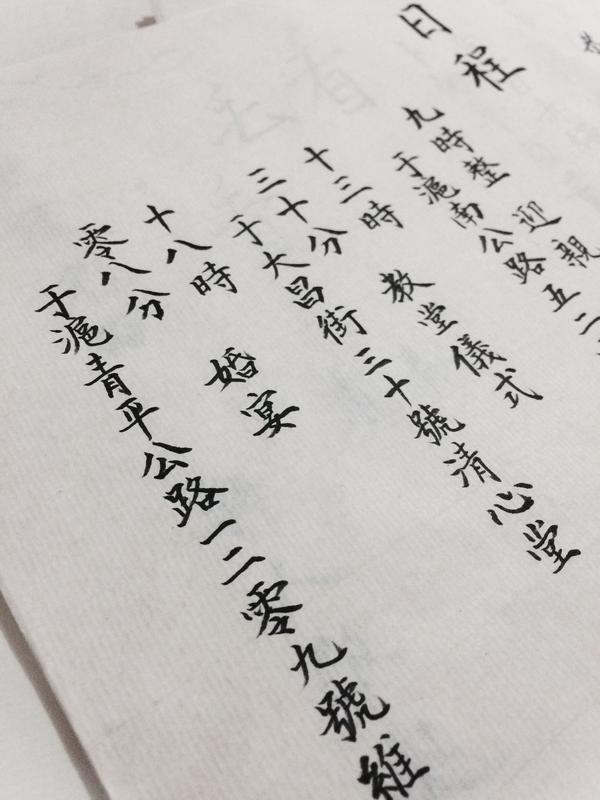 日程
九時整 迎親
于滬南公路五二
十三時三十分 教堂儀式
于大昌街三十號清心堂
十八時零八分 婚宴
于滬青平公路一二零九號維